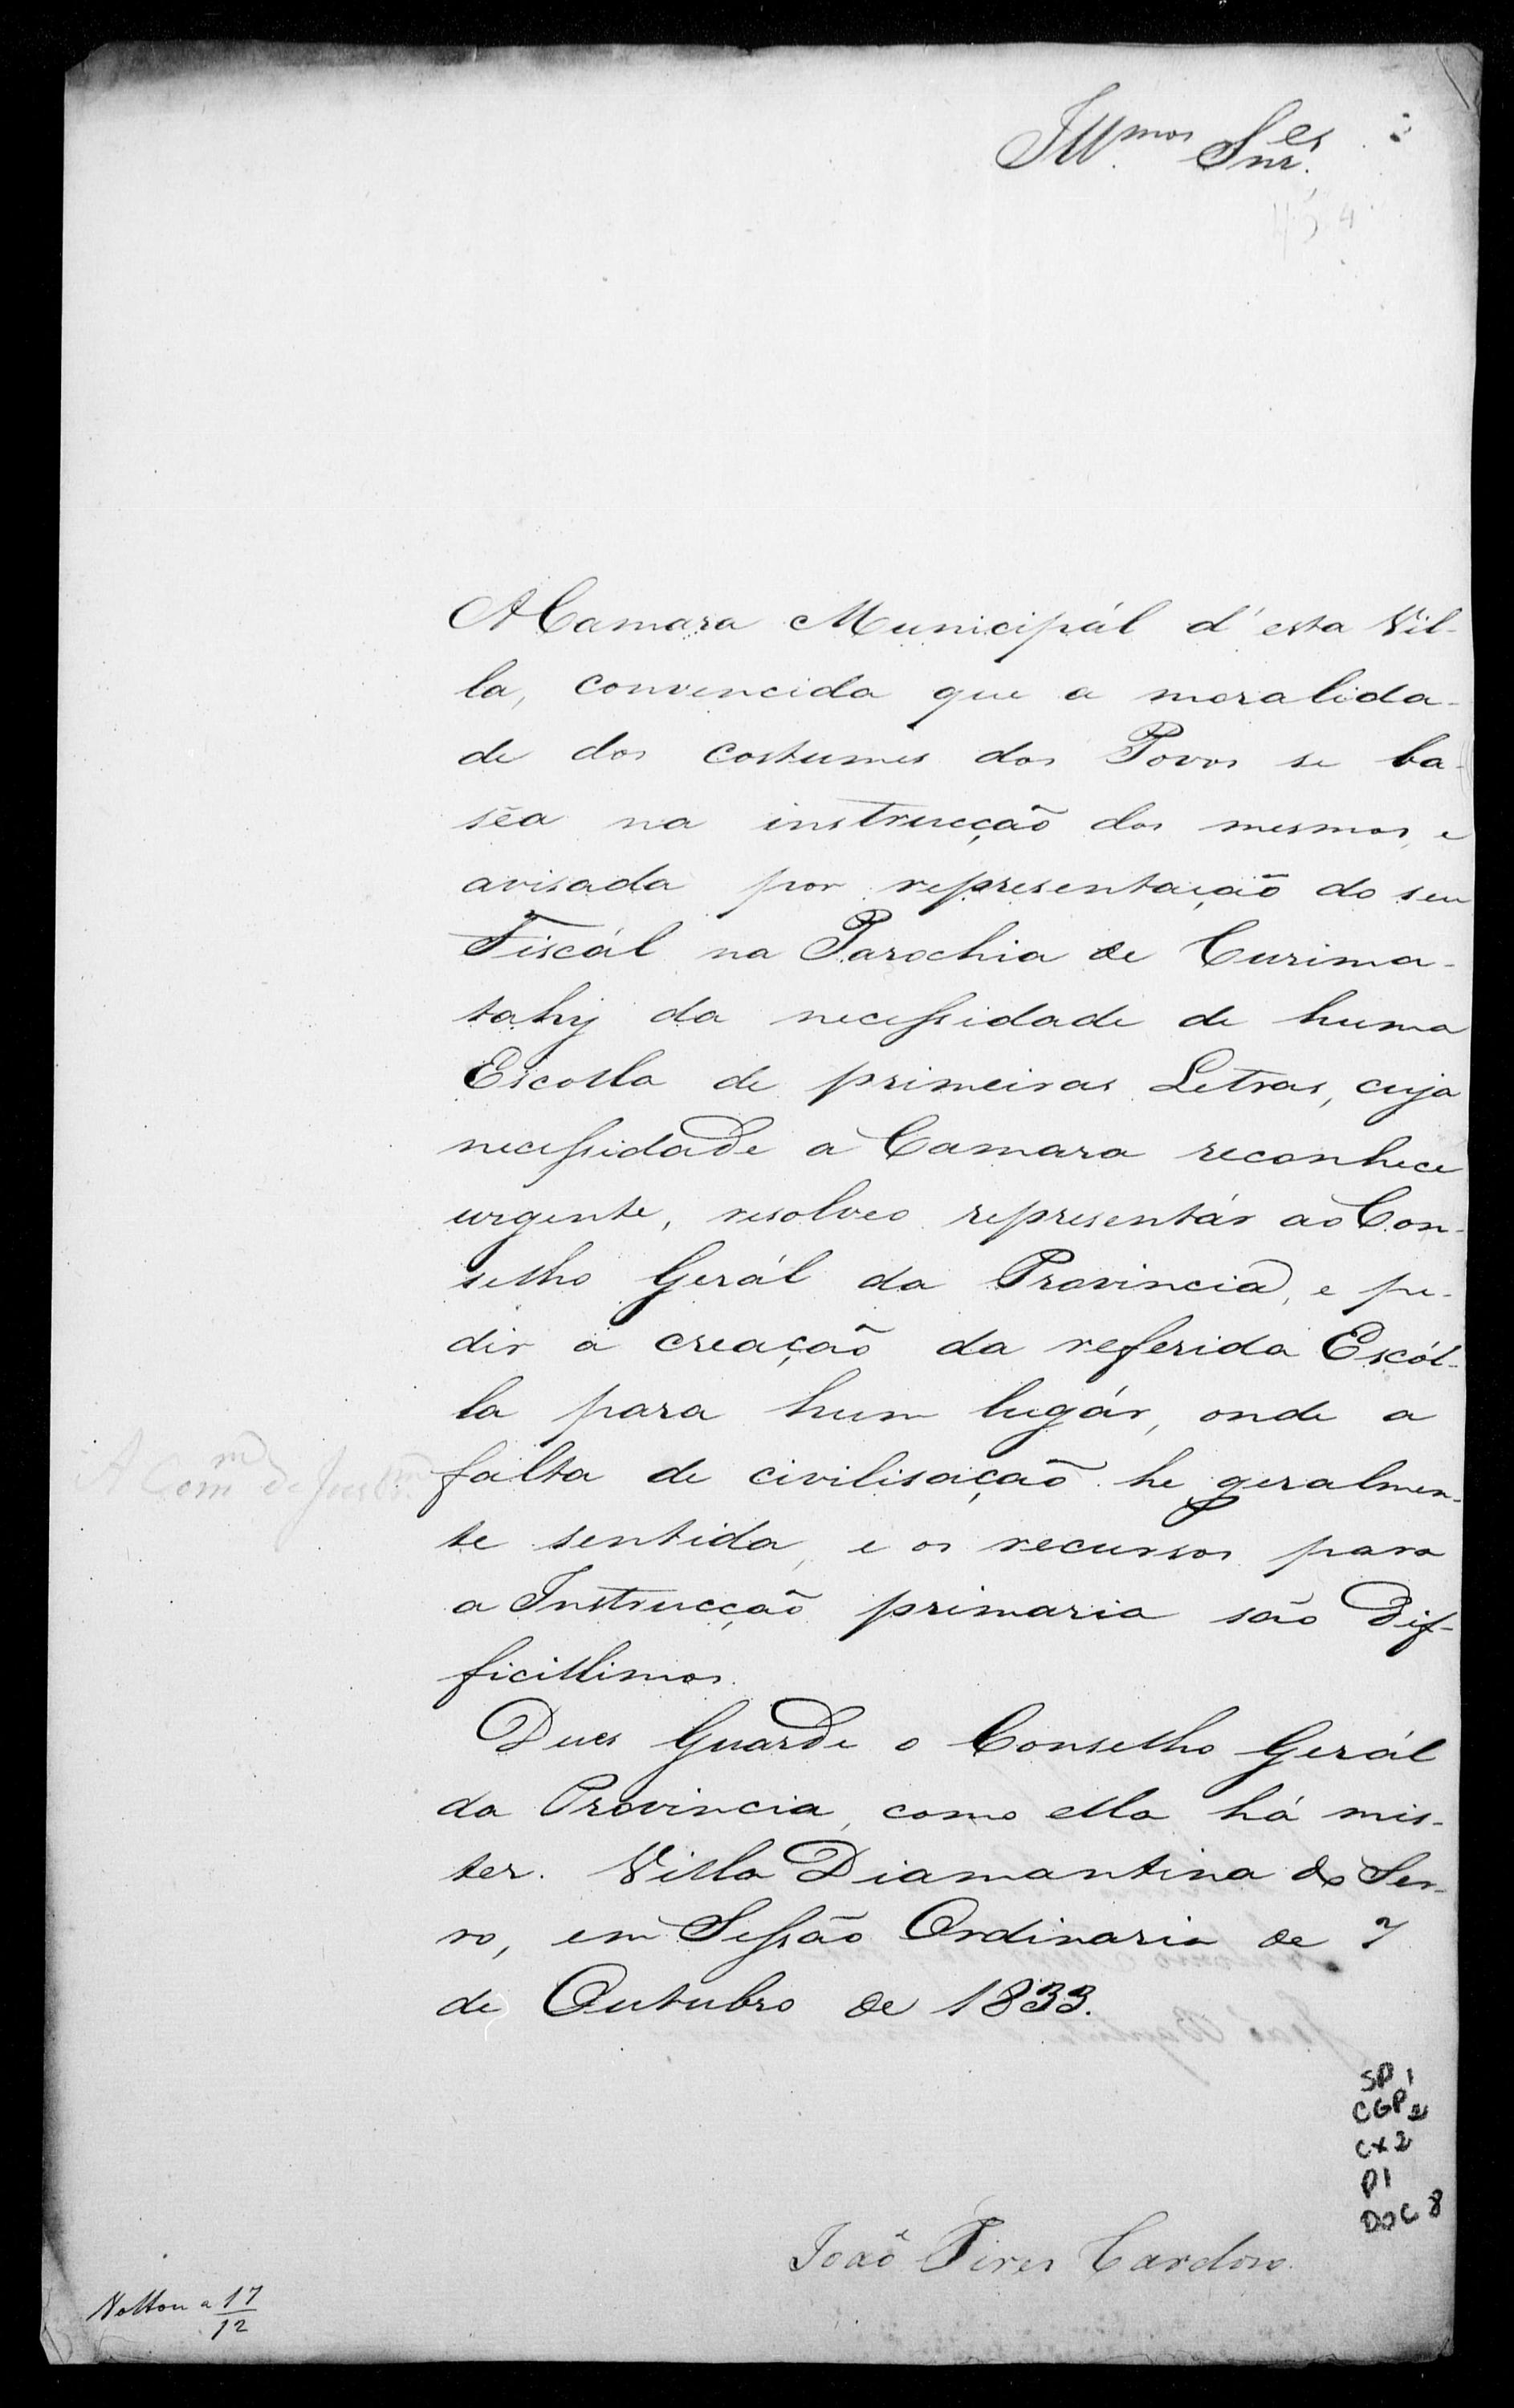 Illmos Snres
A Camara Municipál d'esta Vil-
la, convencida que a moralida-
de dos costumes dos Povos se ba-
sêa na instrucção dos mesmos, e
avisada por representação do seu
Fiscál na Parochia de Curima-
tahÿ da necessidade de huma
Escolla de primeiras Letras, cuja
necessidade a Camara reconhece
urgente, resolveo representár ao Con-
selho Gerál da Provincia, e pe-
dir a creação da referida Escól-
la para hum lugár, onde a
falta de civilisação he geralmen-
te sentida, e os recursos para
a Instrucção primaria são dif-
ficillimos.
Deus Guarde o Conselho Gerál
da Provincia, como ella há mis-
ter. Villa Diamantina do Ser-
ro, em Sessão Ordinaria de 7
de Outubro de 1833.
João Pires Cardoso.
A Comm de Instrm
SP 1
CGP 2
CX 2
P1
DOC 8
Voltou a 17/12